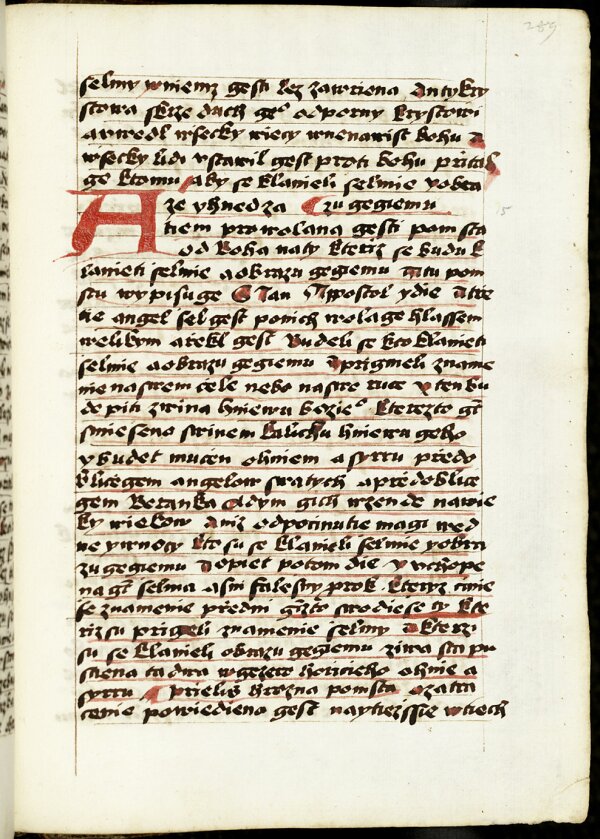 289
selmy w niemz gest lez zawriena Antykry
stowa skrze duch geº odporny krystowi
a uwedl wsecky wiecy w nenawist bohu A
wsecky lidi vstawil gest proti bohu pritah
ge k tomu Aby se klanieli selmie y obra
ze yhned za zu gegiemu
Atiem prowolana gest pomsta
od boha na ty kteriz se budu k
lanieti selmie a obrazu gegiemu A tu pom
stu wypisuge S Jan Appostol y die A tre
tie angel sel gest po nich wolage hlassem
welikym a rekl gest Budeli se kto klanieti
selmie a obrazu gegiemu A prigmeli zname
nie na swem cele nebo na swe ruce y ten bu
de piti z wina hniewu bozieº kterezto gt
smieseno s winem kalichu hniewu geho
y budet mucen ohniem a syru przed o
bliczegem angelow swatych a pred oblice
gem Beranka A dym gich wzende na wie
ky wiekow A niz odpocinutie magi we d
ne y w nocy kto su se klanieli selmie y obra
zu gegiemu A opiet potom die y vchope
na gt selma a s ni falesny prok kteryz cinie
se znamenie przed ni gimzto swodiese ty kte
rizsu prigeli znamenie selmy A kterzi
su se klanieli obrazu gegiemu ziwa sta pu
stiena ta dwa w gezero horicieho ohnie a
syru prielis hrozna pomsta o zatra
cenie powiediena gest naytiezssie w tiech
15